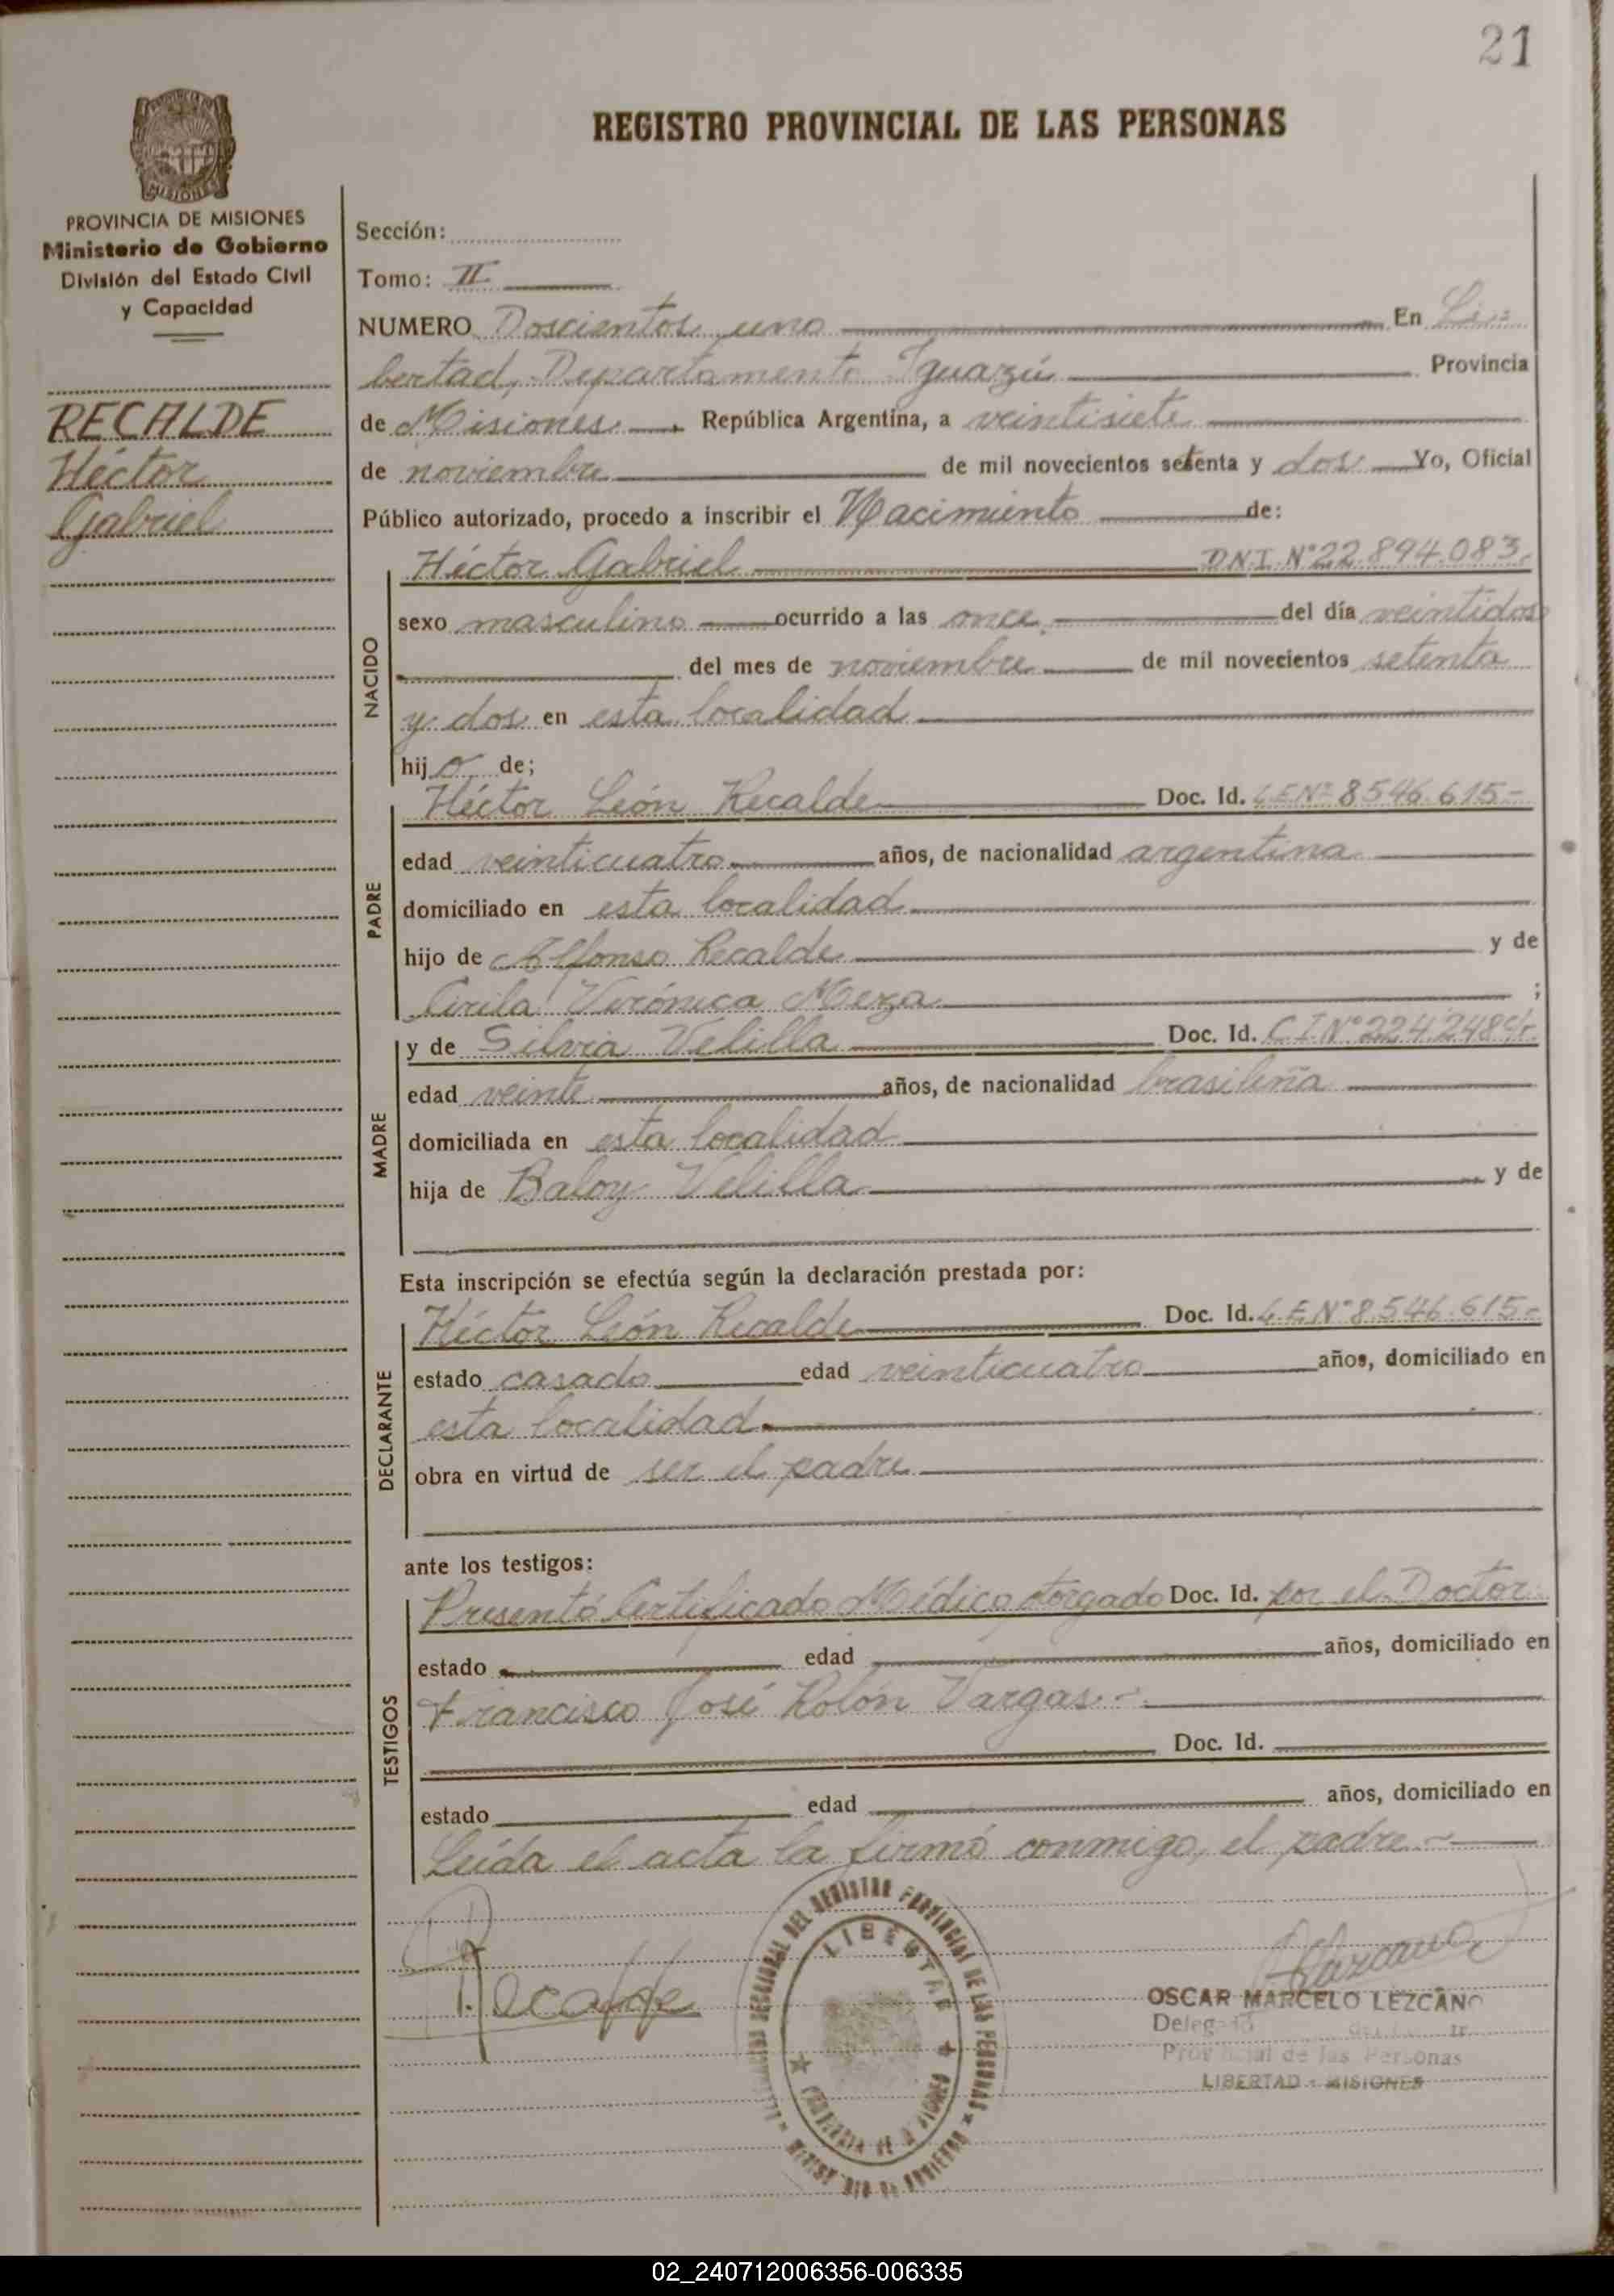 21
REGISTRO PROVINCIAL DE LAS PERSONAS
PROVINCIA DE
MISIONES
PROVINCIA DE MISIONES
Ministerio de Gobierno
División del Estado Civil
y Capacidad
RECALDE
Héctor
Gabriel
Sección:
Tomo: II
NUMERO Doscientos uno En Li-
bertad, Departamento Iguazú Provincia
de Misiones, República Argentina, a veintisiete
de noviembre de mil novecientos setenta y dos Yo, Oficial
Público autorizado, procedo a inscribir el Nacimiento de:
NACIDO
Héctor Gabriel D.N.I. Nº 22.894.083.
sexo masculino ocurrido a las once. del día veintidos
del mes de noviembre de mil novecientos setenta
y dos en esta localidad
hijo de;
PADRE
Héctor León Recalde Doc. Id. L.E.Nº 8546.615-
edad veinticuatro años, de nacionalidad argentina
domiciliado en esta localidad
hijo de Alfonso Recalde y de
Verónica Meza ;
MADRE
y de Silvia Velilla Doc. Id. C.I.Nº
edad veinte años, de nacionalidad brasileña
domiciliada en esta localidad
hija de Baloy Velilla y de
Esta inscripción se efectúa según la declaración prestada por:
DECLARANTE
Héctor León Recalde Doc. Id. L.E.Nº 8.546.615-
estado casado edad veinticuatro años, domiciliado en
esta localidad
obra en virtud de ser el padre
ante los testigos:
TESTIGOS
Presentó Certificado Médico otorgado Doc. Id. por el Doctor
estado edad años, domiciliado en
Francisco José Rolón Vargas.-
Doc. Id.
estado edad años, domiciliado en
Leída el acta la firmó conmigo, el padre.-
Recalde
REGISTRO PROVINCIAL DE LAS PERSONAS
LIBERTAD
OSCAR MARCELO LEZCANO
Provincial de las Personas
LIBERTAD - MISIONES
02_240712006356-006335